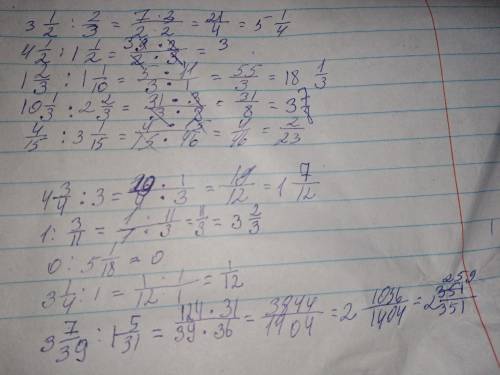 3 1/2 : 2/3 = 7·3/2·2 = 21/4 = 5 1/4
4 1/2 : 1 1/2 = 3 9·2/2·3 = 3
1 2/3 : 1 1/10 = 5·11/3·1 = 55/3 = 18 1/3
10 1/3 : 2 2/3 = 31·3/3·8 = 31/8 = 3 7/8
4/15 : 3 1/15 = 4·15/15·46 = 4/46 = 2/23
4 3/4 : 3 = 19/4 · 1/3 = 19/12 = 1 7/12
1 : 3/11 = 1·11/1·3 = 11/3 = 3 2/3
0 : 5 1/18 = 0
3 1/4 : 1 = 1/12 · 1/1 = 1/12
3 7/39 : 1 5/31 = 124·31/39·36 = 3844/1404 = 2 1036/1404 = 2 259/351